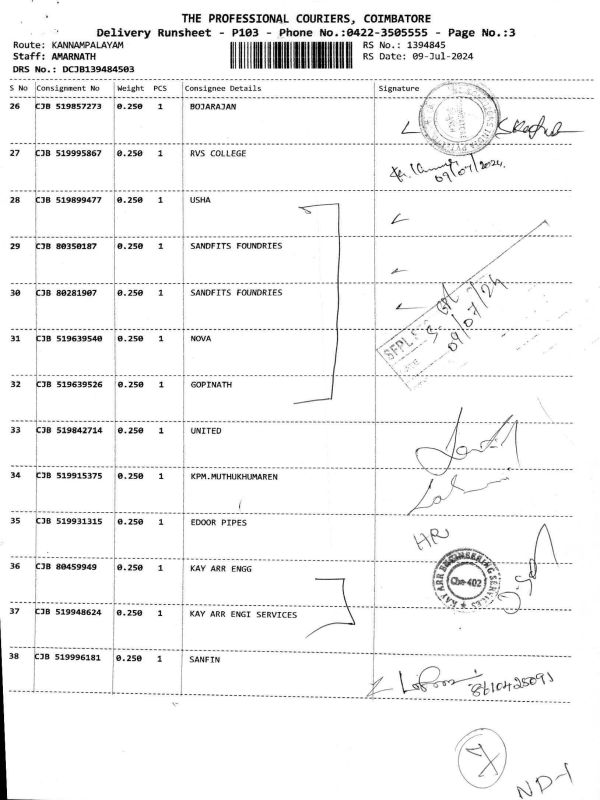 THE PROFESSIONAL COURIERS, COIMBATORE
Delivery Runsheet - P103 - Phone No.:0422-3505555 - Page No.:3
Route: KANNAMPALAYAM
RS No.: 1394845
Staff: AMARNATH
RS Date: 09-Jul-2024
DRS No.: DCJB139484503
S No Consignment No Weight PCS Consignee Details Signature
26 CJB 519857273 0.250 1 BOJARAJAN
27 CJB 519995867 0.250 1 RVS COLLEGE
09/07/2024.
28 CJB 519899477 0.250 1 USHA
29 CJB 80350187 0.250 1 SANDFITS FOUNDRIES
30 CJB 80281907 0.250 1 SANDFITS FOUNDRIES
SFPL
09/07/24
31 CJB 519639540 0.250 1 NOVA
32 CJB 519639526 0.250 1 GOPINATH
33 CJB 519842714 0.250 1 UNITED
34 CJB 519915375 0.250 1 KPM.MUTHUKHUMAREN
35 CJB 519931315 0.250 1 EDOOR PIPES
HR
36 CJB 80459949 0.250 1 KAY ARR ENGG
KAY ARR ENGINEERING SERVICES
Cbe-402
37 CJB 519948624 0.250 1 KAY ARR ENGI SERVICES
38 CJB 519996181 0.250 1 SANFIN
8610425091
ND-1